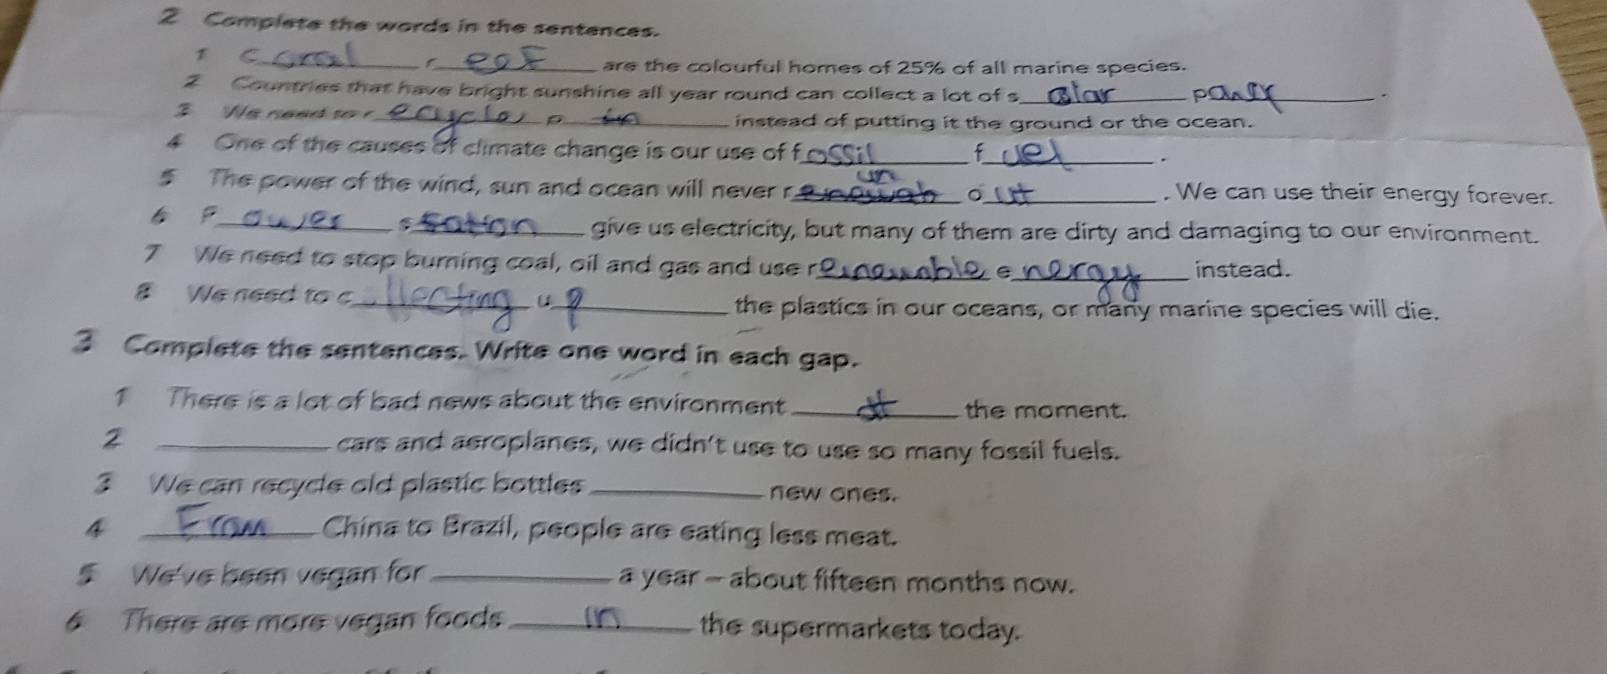 2 Complete the words in the sentences.
1 C oral r eef are the colourful homes of 25% of all marine species.
2 Countries that have bright sunshine all year round can collect a lot of s olar p
3 We need to r ecycle p instead of putting it the ground or the ocean.
4 One of the causes of climate change is our use of f ossil f uel.
un
5 The power of the wind, sun and ocean will never r o ut. We can use their energy forever.
6 P ower s tation give us electricity, but many of them are dirty and damaging to our environment.
7 We need to stop burning coal, oil and gas and use r enewable e nergy instead.
8 We need to c ollecting u p the plastics in our oceans, or many marine species will die.
3 Complete the sentences. Write one word in each gap.
1 There is a lot of bad news about the environment at the moment.
2 cars and aeroplanes, we didn't use to use so many fossil fuels.
3 We can recycle old plastic bottles new ones.
4 From China to Brazil, people are eating less meat.
5 We've been vegan for a year – about fifteen months now.
6 There are more vegan foods in the supermarkets today.